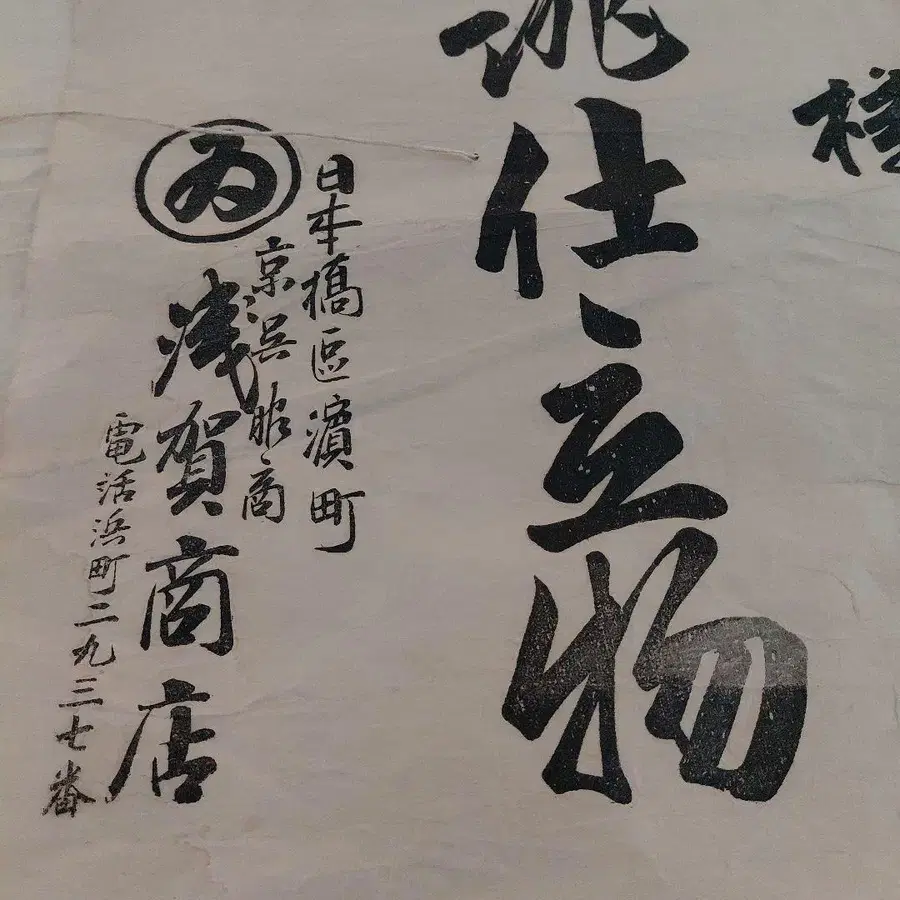 様
誂仕立物
日本橋區濱町
京呉服商
浅賀商店
電話浜町二九三七番